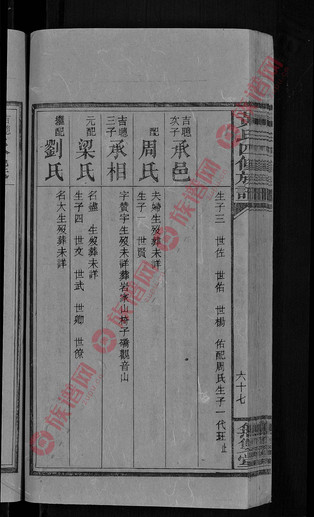 黃氏四修族譜
六十七
生子三 世佐 世佑 世楊 佑配周氏生子一代班止
吉聰次子 承邑
夫婦生歿葬未詳
配 周氏
生子一 世貫
吉聰三子 承相
字贊宇生歿未詳葬岩家山椅子礦觀音山
元配 梁氏
名 生歿葬未詳
生子四 世文 世武 世卿 世僚
繼配 劉氏
名大生歿葬未詳
吉聰
族谱网